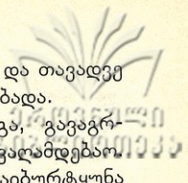 და თავადვე
ბადა.
გა, გავაგრ-
ვაღამდებარ-
აიბურტყუნა